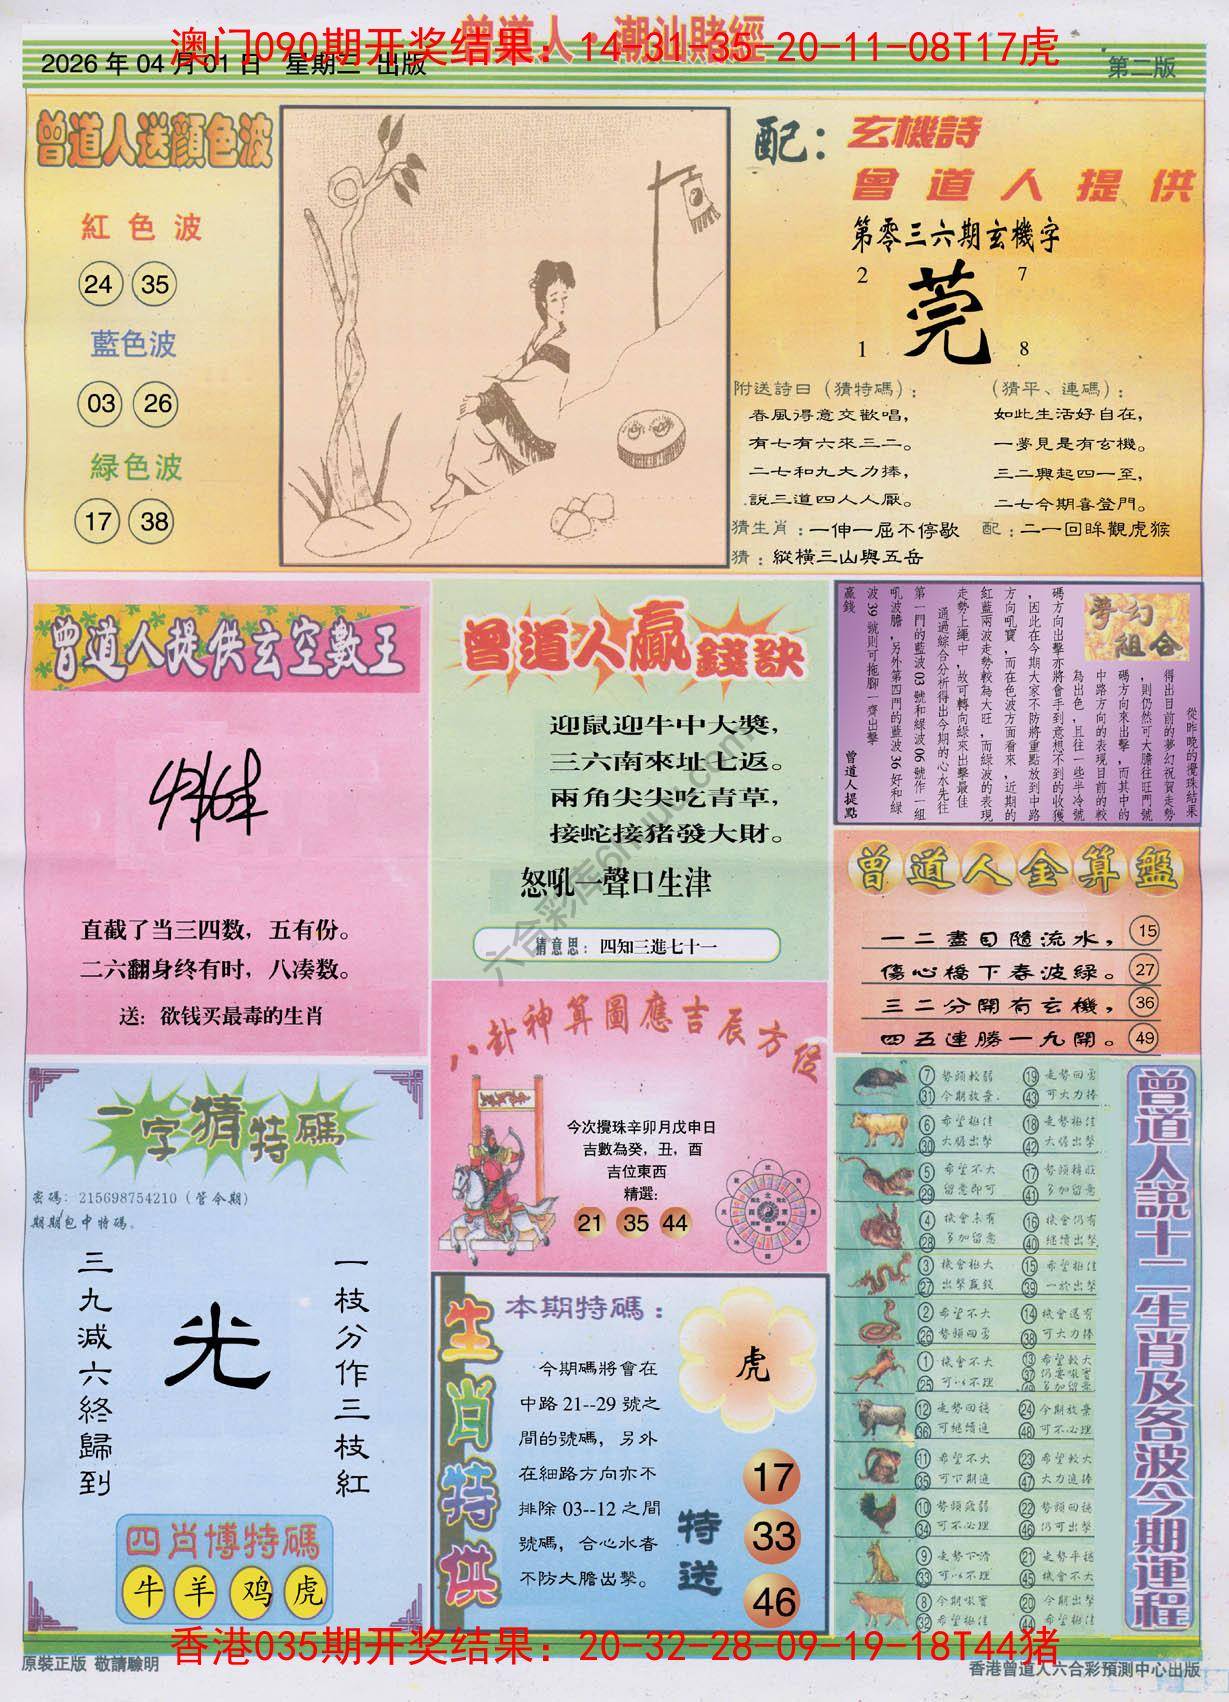 曾道人·潮汕賭經
澳门090期开奖结果：14-31-35-20-11-08T17虎
2026年04月01日 星期三 出版
第二版
曾道人送顏色波
紅色波
24 35
藍色波
03 26
緑色波
17 38
配：玄機詩
曾道人提供
第零三六期玄機字
2 7
莞
1 8
附送詩曰（猜特碼）：
春風得意交歡唱，
有七有六來三二。
二七和九大力捧，
說三道四人人厭。
（猜平、連碼）：
如此生活好自在，
一夢見是有玄機。
三二興起四一至，
二七今期喜登門。
猜生肖：一伸一屈不停歇 配：二一回眸觀虎猴
猜：縱橫三山與五岳
曾道人提供玄空數王
直截了当三四数，五有份。
二六翻身终有时，八凑数。
送：欲钱买最毒的生肖
曾道人贏錢訣
迎鼠迎牛中大獎，
三六南來址七返。
兩角尖尖吃青草，
接蛇接猪發大財。
怒吼一聲口生津
猜意思：四知三進七十一
夢幻組合
從昨晚的攪珠結果
得出目前的夢幻祝賀走勢
，則仍然可大膽往旺門號
碼方向來出擊，而其中的
中路方向的表現目前的較
為出色，且往一些半冷號
碼方向出擊亦將會手到意想不到的收獲
，因此在今期大家不防將重點放到中路
方向吼寶，而在色波方面看來，近期的
紅藍兩波走勢較為大旺，而綠波的表現
走勢上繩中，故可轉向綠來出擊最佳
通過綜合分析得出今期的心水先往
第一門的藍波03號和綠波06號作一組
吼波膽，另外第四門的藍波36好和綠
波39號則可拖腳一齊出擊
贏錢
曾道人提點
曾道人金算盤
一二盡目隨流水， 15
傷心橋下春波緑。 27
三二分開有玄機， 36
四五連勝一九開。 49
八卦神算圖應吉辰方位
今次攪珠辛卯月戊申日
吉數為癸，丑，酉
吉位東西
精選：
21 35 44
一字猜特碼
密碼：215698754210（管令期）
期期包中特碼。
一枝分作三枝紅
光
三九減六終歸到
四肖博特碼
牛 羊 鸡 虎
生肖特供
本期特碼：
虎
今期碼將會在
中路21--29號之
間的號碼，另外
在細路方向亦不
排除03--12之間
號碼，合心水者
不防大膽出擊。
特送
17
33
46
曾道人說十二生肖及各波今期運程
7 勢頭較弱 19 走勢回勇
31 今期放棄 43 可大力捧
6 希望極佳 18 走勢極佳
30 大膽出擊 42 大膽出擊
5 希望不大 17 勢頭轉旺
29 留意即可 41 多加留意
4 機會未有 16 機會仍有
28 多加留意 40 繼續出擊
3 機會極大 15 希望極佳
27 出擊贏錢 39 一於出擊
2 希望不大 14 機會還有
26 勢頭回勇 38 可大力捧
1 機會不大 13 希望較大
25 可以不理 37 仍要吼實
49 多加留意
12 走勢回穩 24 今期放棄
36 可繼續追 48 可不必理
11 希望不大 23 希望較大
35 可下期追 47 大力追捧
10 勢頭疲弱 22 勢頭回穩
34 可不必理 46 仍可出擊
9 走勢下滑 21 走勢平穩
33 可以不理 45 機會不大
8 今期吼實 20 今期出擊
32 希望極佳 44 希望極佳
香港035期开奖结果：20-32-28-09-19-18T44猪
原裝正版 敬請驗明
香港曾道人六合彩預測中心出版